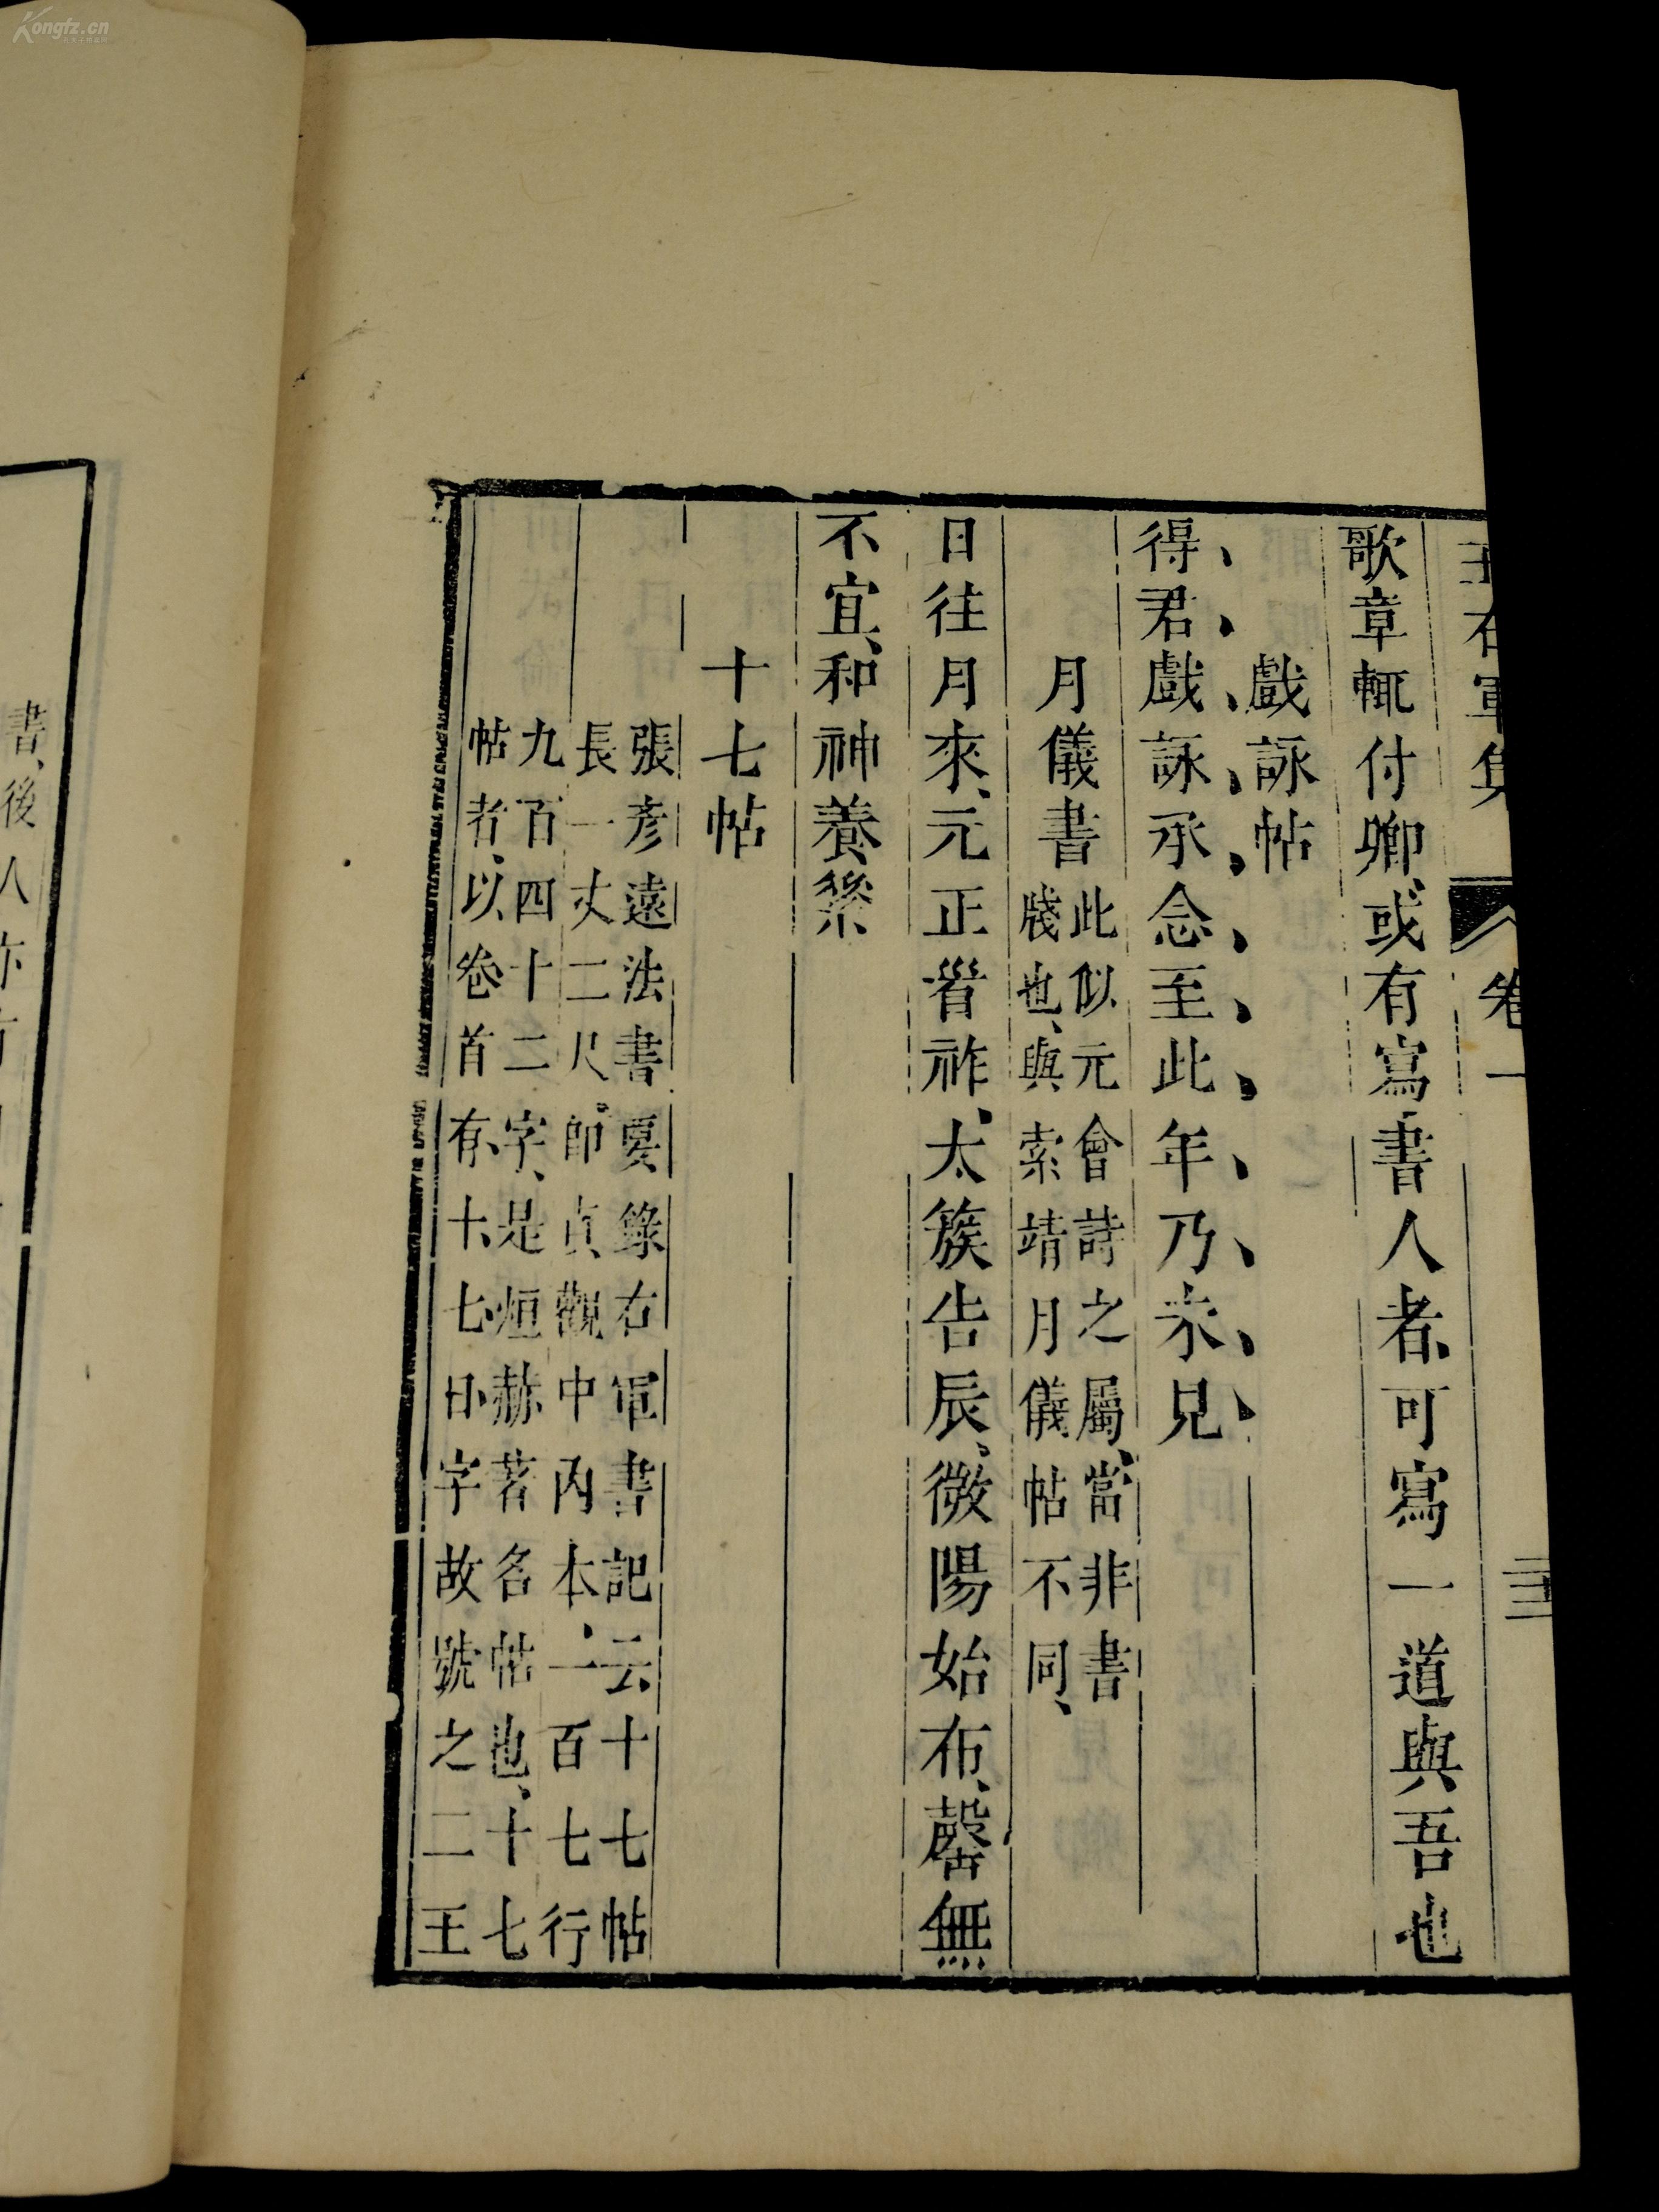 Kongfz.cn
王右軍集 卷一 二十三
歌章輒付卿、或有寫書人者、可寫一道與吾也
戲詠帖
得君戲詠承念至此年乃未見
月儀書
此似元會詩之屬、當非書
牋也、與索靖月儀帖不同、
日往月來、元正首祚、太簇告辰、微陽始布、罄無
不宜、和神養素
十七帖
張彥遠法書要錄右軍書記云十七帖
長一丈二尺、即貞觀中內本、一百七行
九百四十二字、是烜赫著名帖也、十七
帖者、以卷首有十七日字故號之二王
書、後人亦